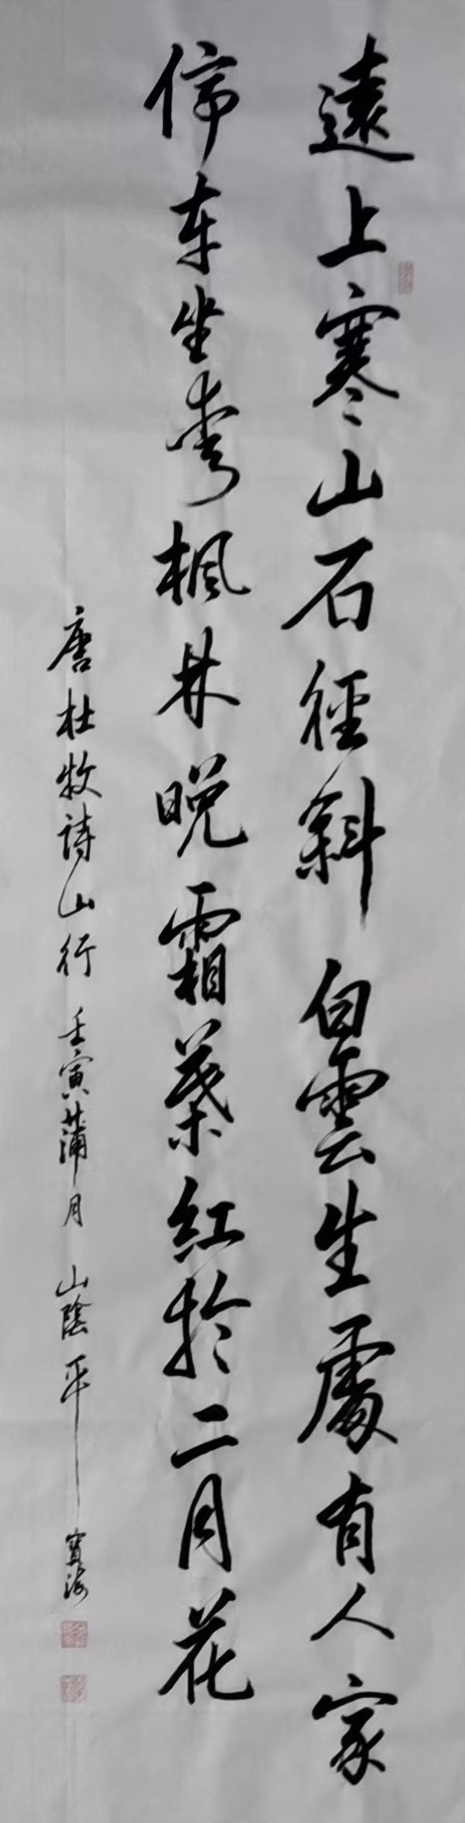 遠上寒山石徑斜白雲生處有人家
停車坐愛楓林晚霜葉紅於二月花
唐杜牧詩山行 壬寅蒲月 山陰平 寶海